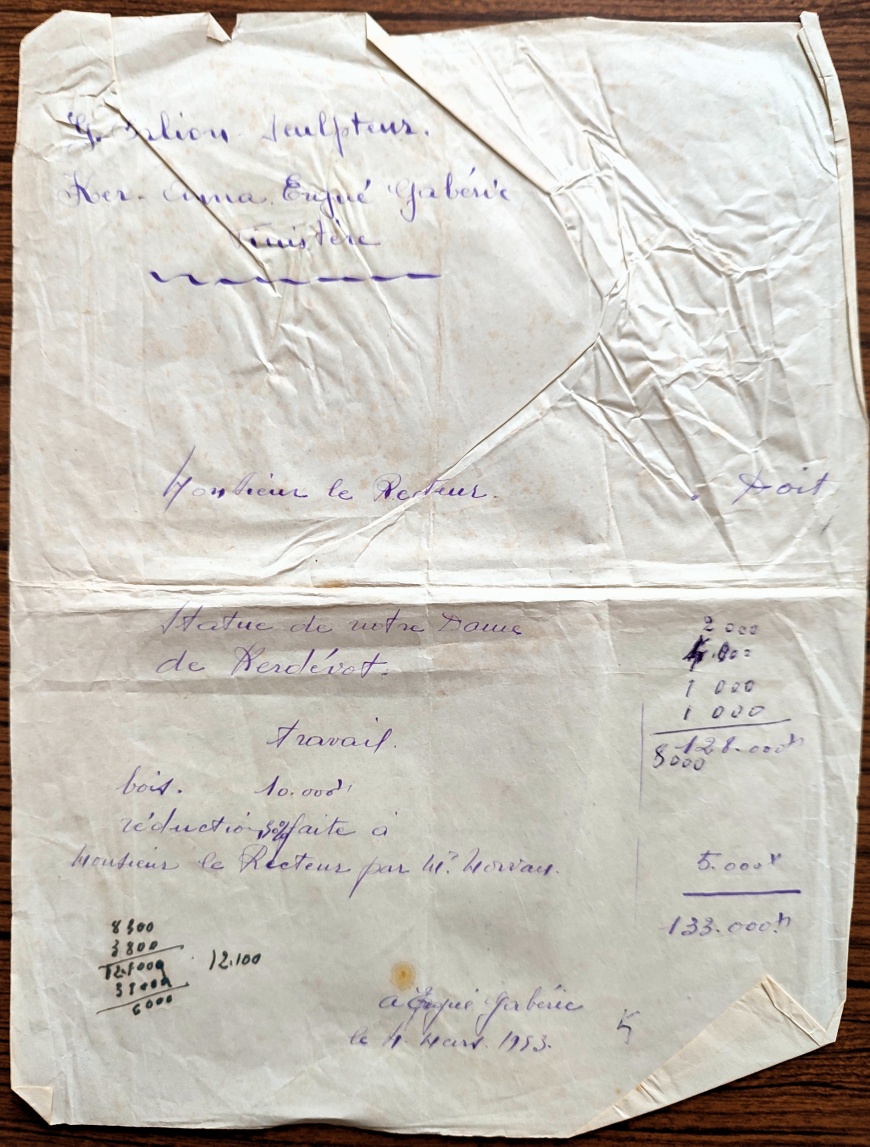 Sculpteur.
Ker- Anna. Ergué Gabéric
Finistère
Monsieur le Recteur. Doit
Statue de notre Dame
de Kerdévot.
2 000
1 000
1 000
128.000
8000
travail.
bois. 10.000
réduction 50% faite à
Monsieur le Recteur par Mr Morvan. 5.000
133.000
8300
3800
12.100
6000
à Ergué Gabéric
le 4. Mars. 1953.